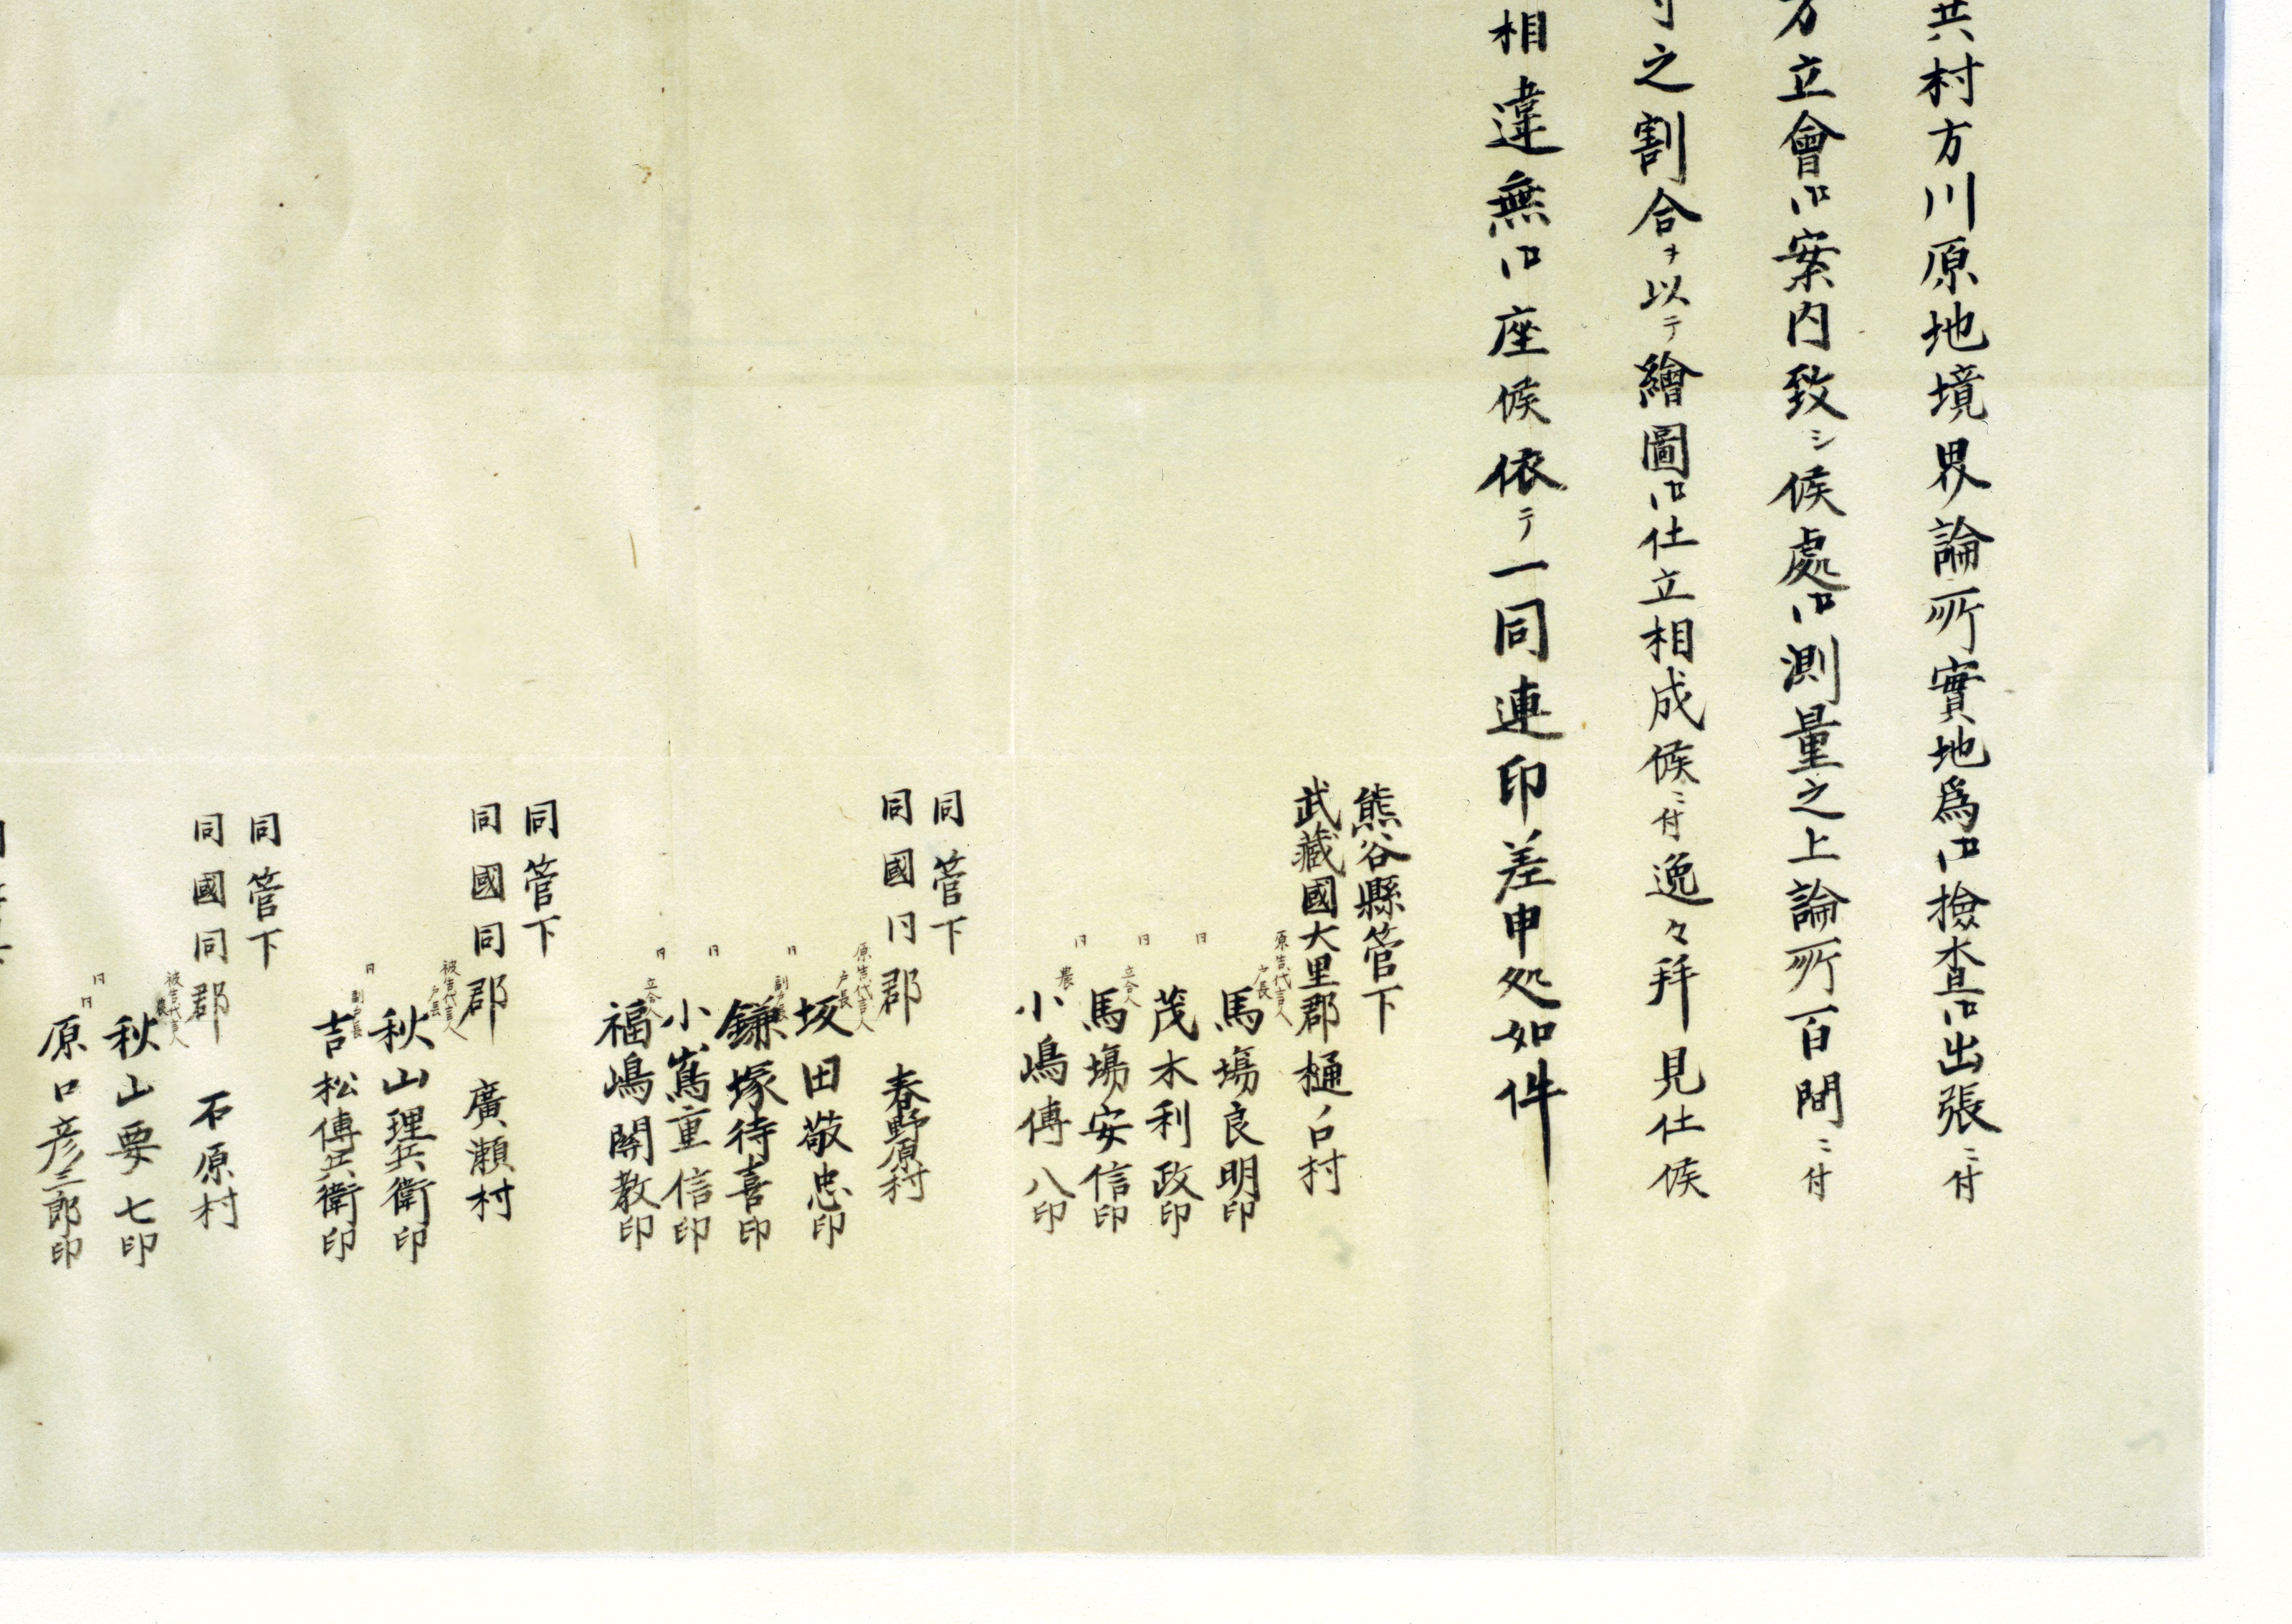 共村方川原地境界論所實地為御撿査御出張ニ付
方立會御案内致シ候處御測量之上論所百間ニ付
寸之割合ヲ以テ繪圖御仕立相成候ニ付逸々拜見仕候
相違無御座候依テ一同連印差申処如件
熊谷縣管下
武藏國大里郡樋ノ口村
原告代言人
戸長
馬場良明印
同
茂木利政印
同
立合人
馬場安信印
同
農
小嶋傳八印
同管下
同國同郡 春野原村
原告代言人
戸長
坂田敬忠印
同
副戸長
鎌塚待喜印
同
小嶌重信印
同
立合人
福嶋開教印
同管下
同國同郡 廣瀬村
被告代言人
戸長
秋山理兵衛印
同
副戸長
吉松傳兵衛印
同管下
同國同郡 石原村
被告代言人
農
秋山要七印
同
同
原口彦三郎印